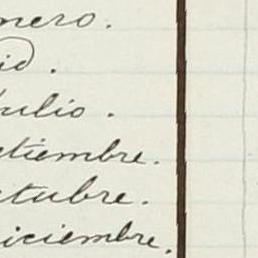 nero.
id.
Julio.
etiembre.
ctubre.
iciembre.